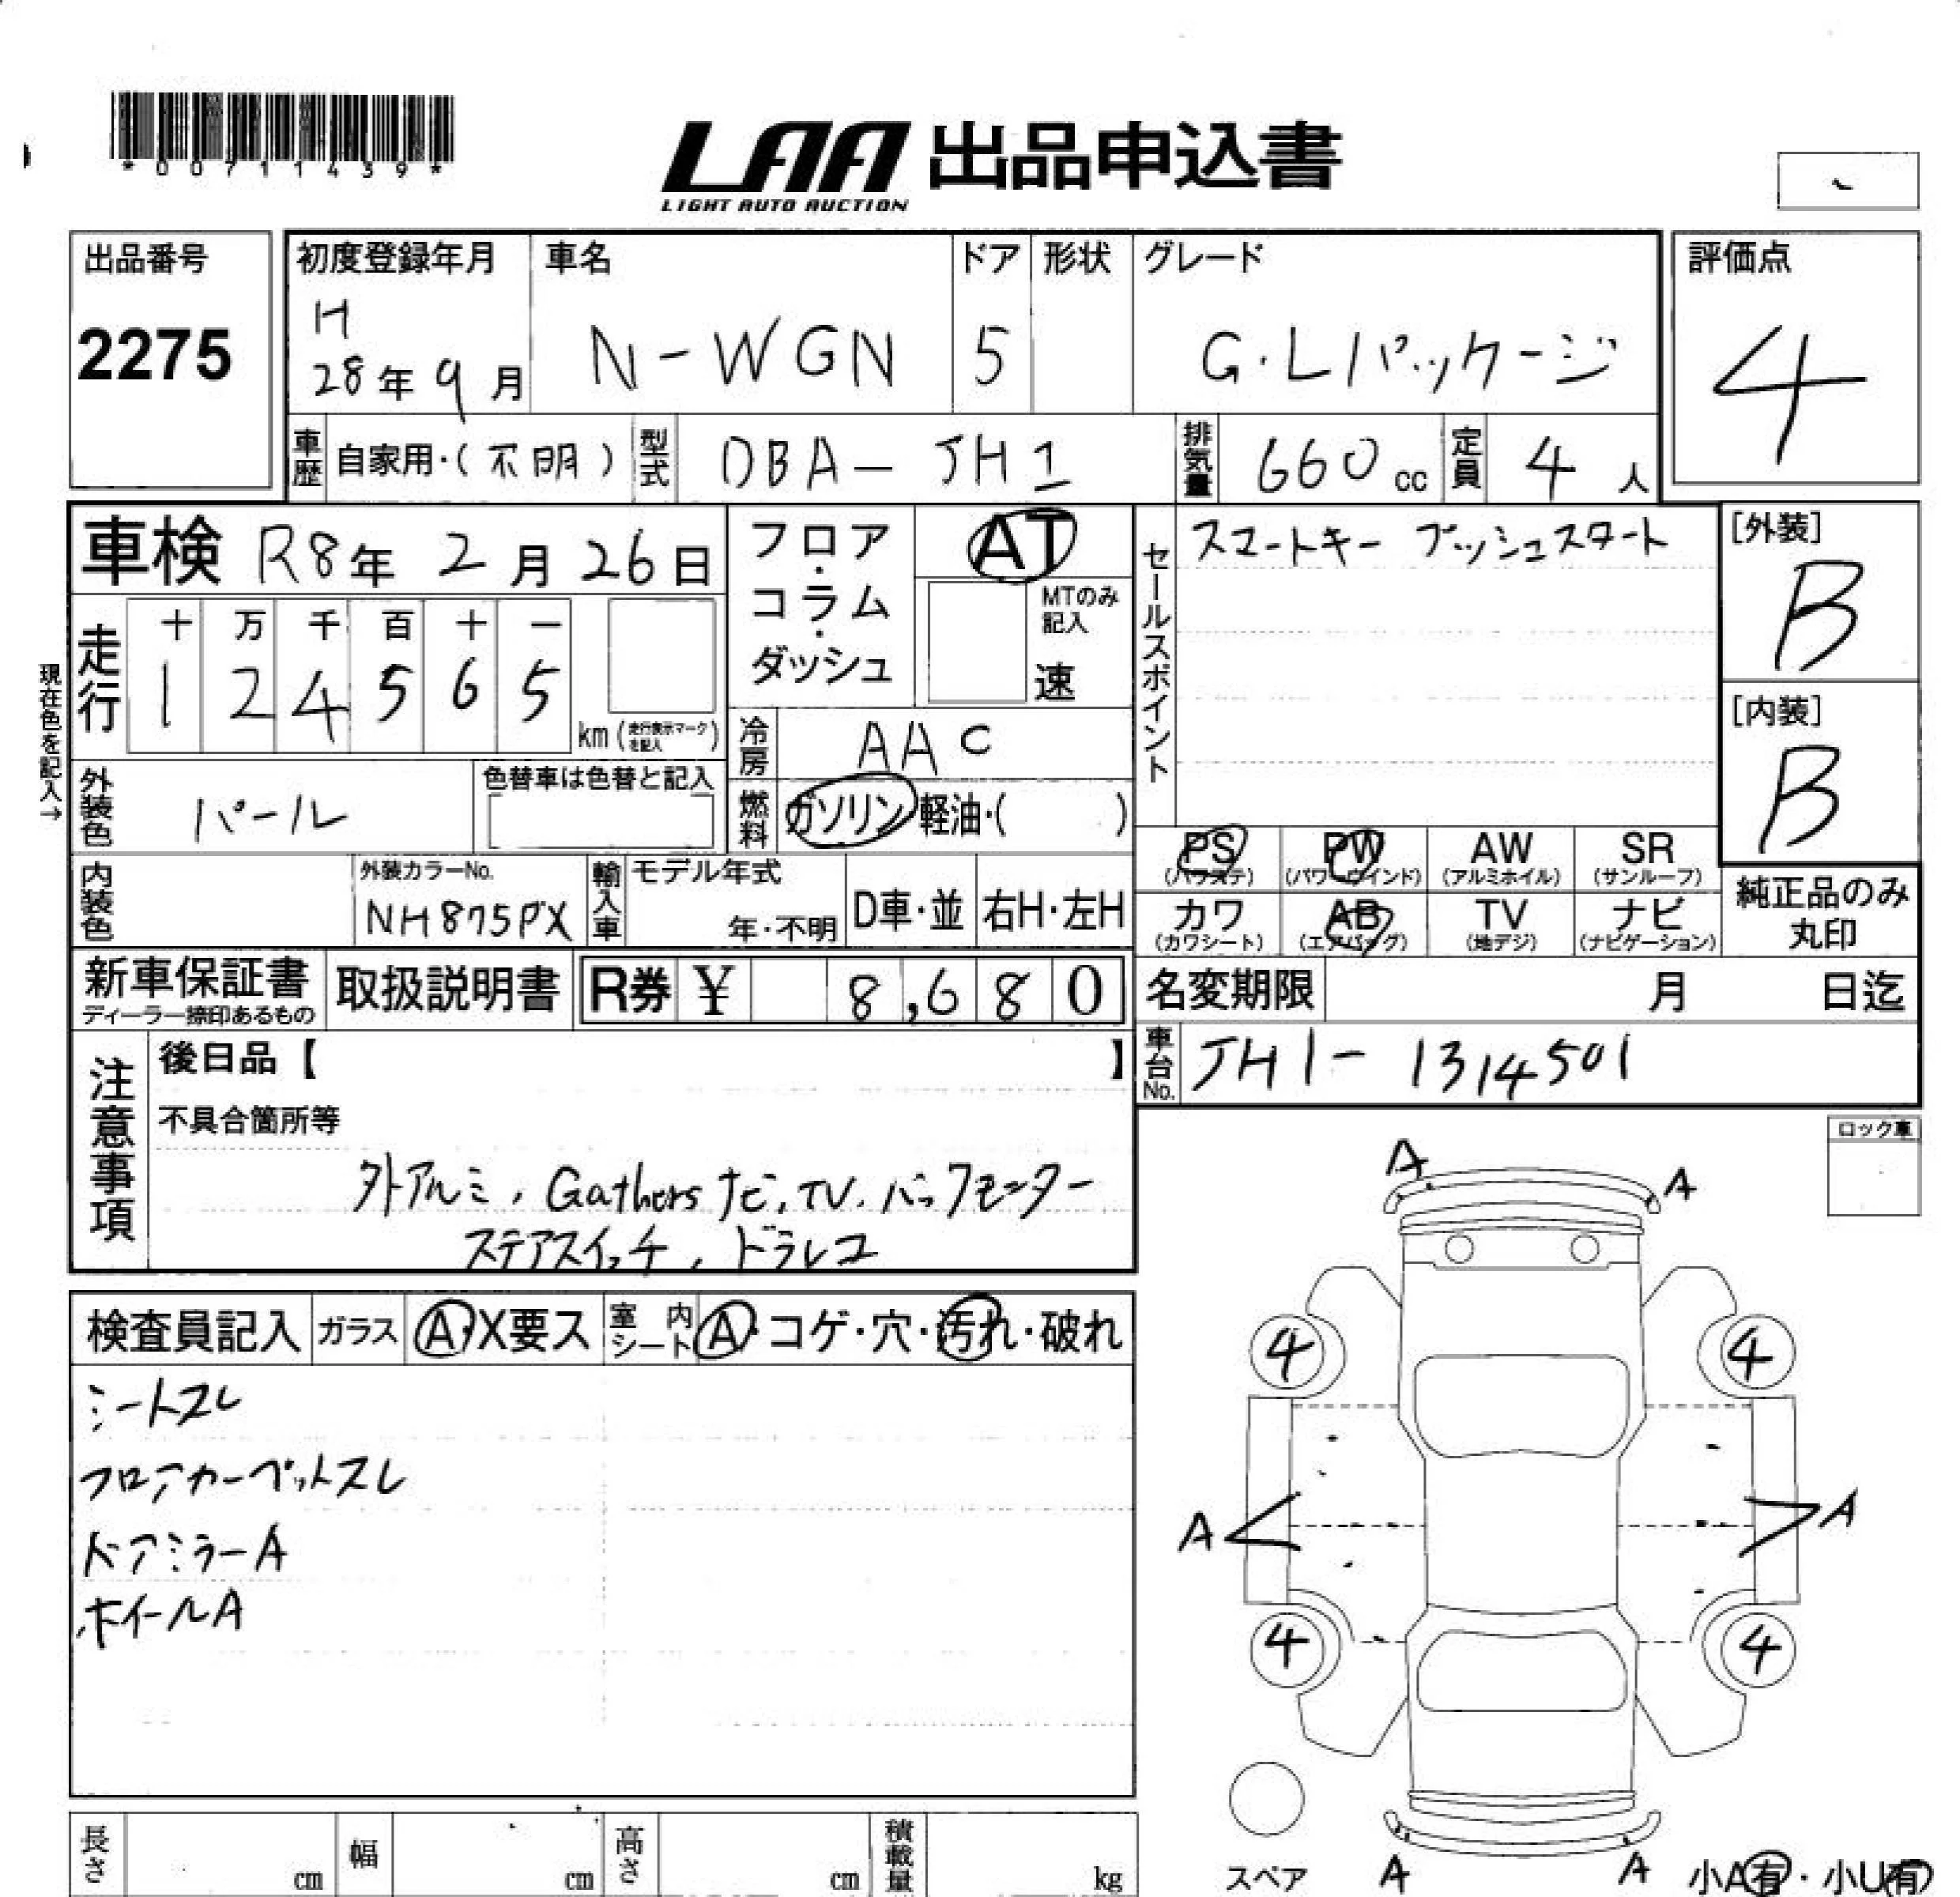 *00711439*
LAA 出品申込書
LIGHT AUTO AUCTION
出品番号
2275
初度登録年月
H
28年 9月
車名
N-WGN
ドア
5
形状
グレード
G・Lパッケージ
評価点
4
車歴 自家用・(不明)
型式 DBA-JH1
排気量 660cc
定員 4人
車検 R8年 2月 26日
フロア・コラム・ダッシュ
AT
MTのみ記入
速
セールスポイント
スマートキー プッシュスタート
[外装]
B
[内装]
B
現在色を記入→
走行
十 万 千 百 十 一
1 2 4 5 6 5
km(走行表示マークを記入)
冷房 AAC
外装色 パール
色替車は色替と記入
燃料 ガソリン 軽油・( )
PS (パワステ)
PW (パワーウインド)
AW (アルミホイル)
SR (サンルーフ)
カワ (カワシート)
AB (エアバッグ)
TV (地デジ)
ナビ (ナビゲーション)
純正品のみ丸印
内装色
外装カラーNo.
NH875PX
輸入車
モデル年式
年・不明
D車・並
右H・左H
新車保証書
ディーラー捺印あるもの
取扱説明書
R券 ¥ 8,680
名変期限 月 日迄
車台No. JH1-1314501
注意事項
後日品【 】
不具合箇所等
外アルミ, Gathersナビ, TV, バックモニター
ステアスイッチ, ドラレコ
ロック車
検査員記入 ガラス A・X要ス 室内シート A・コゲ・穴・汚れ・破れ
シートスレ
フロアカーペットスレ
ドアミラーA
ホイールA
A
A
4
4
A
A
4
4
A
A
スペア
小A有・小U有
長さ cm
幅 cm
高さ cm
積載量 kg